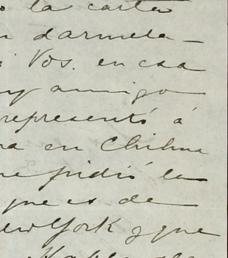 o la carta
n darmela
Vos. en esa
muy amigo
representó á
ra en Chihua
me pidió la
que es de
New York y que